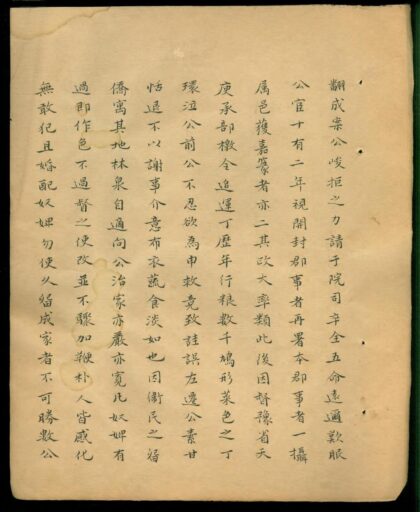 翻成案公峻拒之力請于院司卒全五命遠邇歎服
公官十有二年視開封郡事者再署本郡事者一攝
属邑獲嘉篆者亦二其政大率類此後因督豫省天
庚承部檄全追運丁歷年行粮數千鳩形菜色之丁
環泣公前公不忍欲為申救竟致詿誤左遷公素甘
恬退不以謝事介意布衣蔬食淡如也因衛民之留
僑寓其地林泉自適向公治家亦嚴亦寬比奴婢有
過即作色不過督之使改並不驟加鞭朴人皆感化
無敢犯且婚配奴婢勿使久留成家者不可勝數公